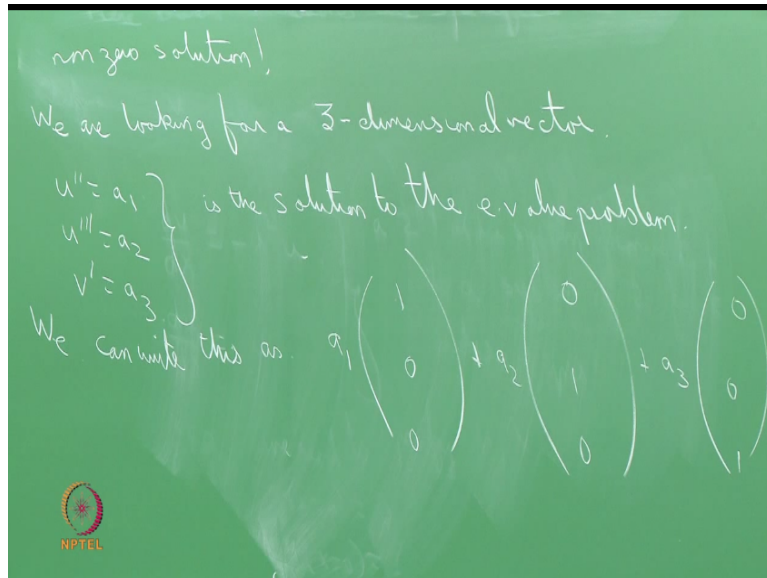 non zero solution!
We are looking for a 3-dimensional vector.
u'' = a₁
u''' = a₂ } is the solution to the e.value problem.
v' = a₃
We can write this as a₁ (1 0 0) + a₂ (0 1 0) + a₃ (0 0 1)
NPTEL